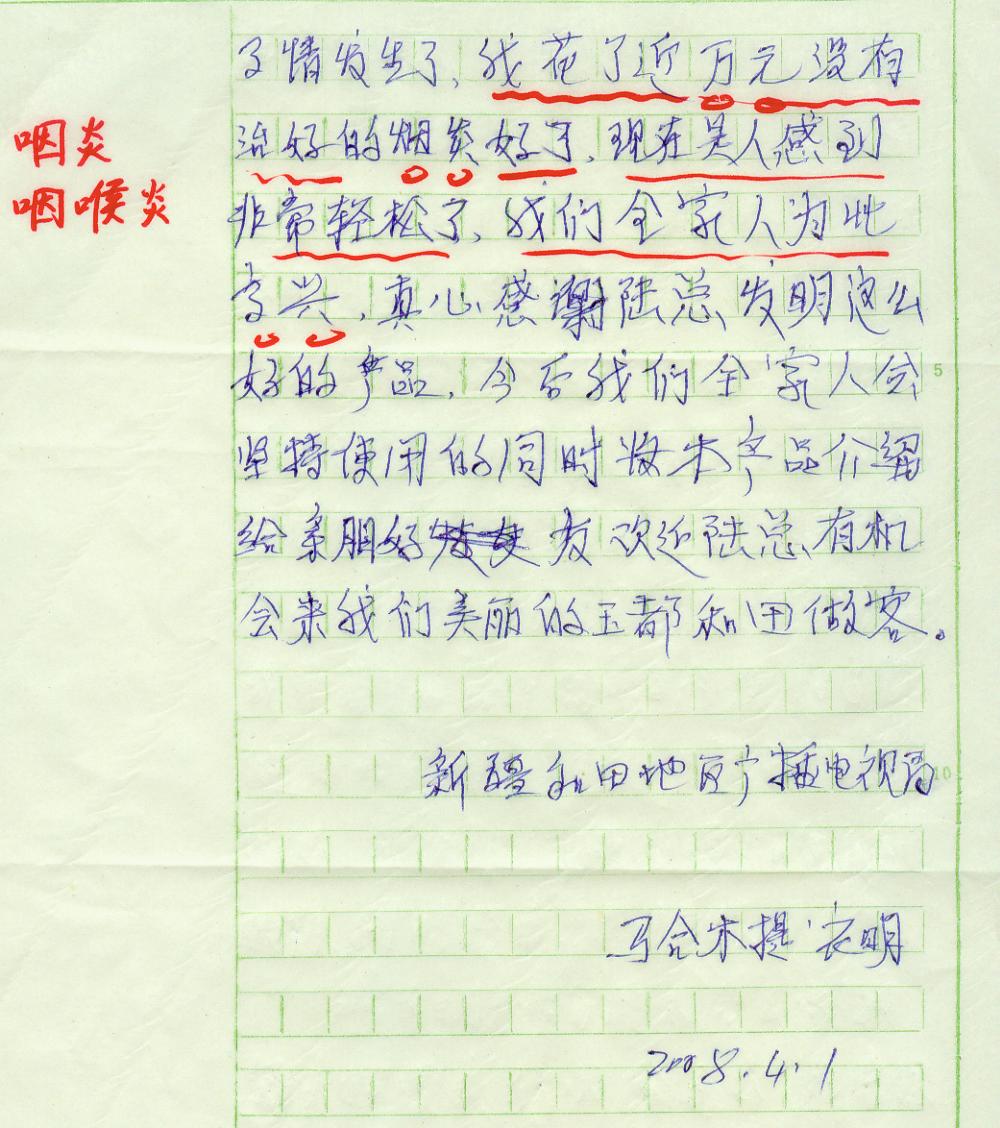 了情发生了，我花了近万元没有
咽炎
治好的烟炎好了，现在关人感到
咽喉炎
非常轻松了，我们全家人为此
高兴，真心感谢陆总发明这么
好的产品，今后我们全家人会
5
坚持使用的同时将本产品介绍
给亲朋好友欢迎陆总有机
会来我们美丽的玉都和田做客。
新疆和田地区广播电视局
10
马合木提·衣明
2008.4.1